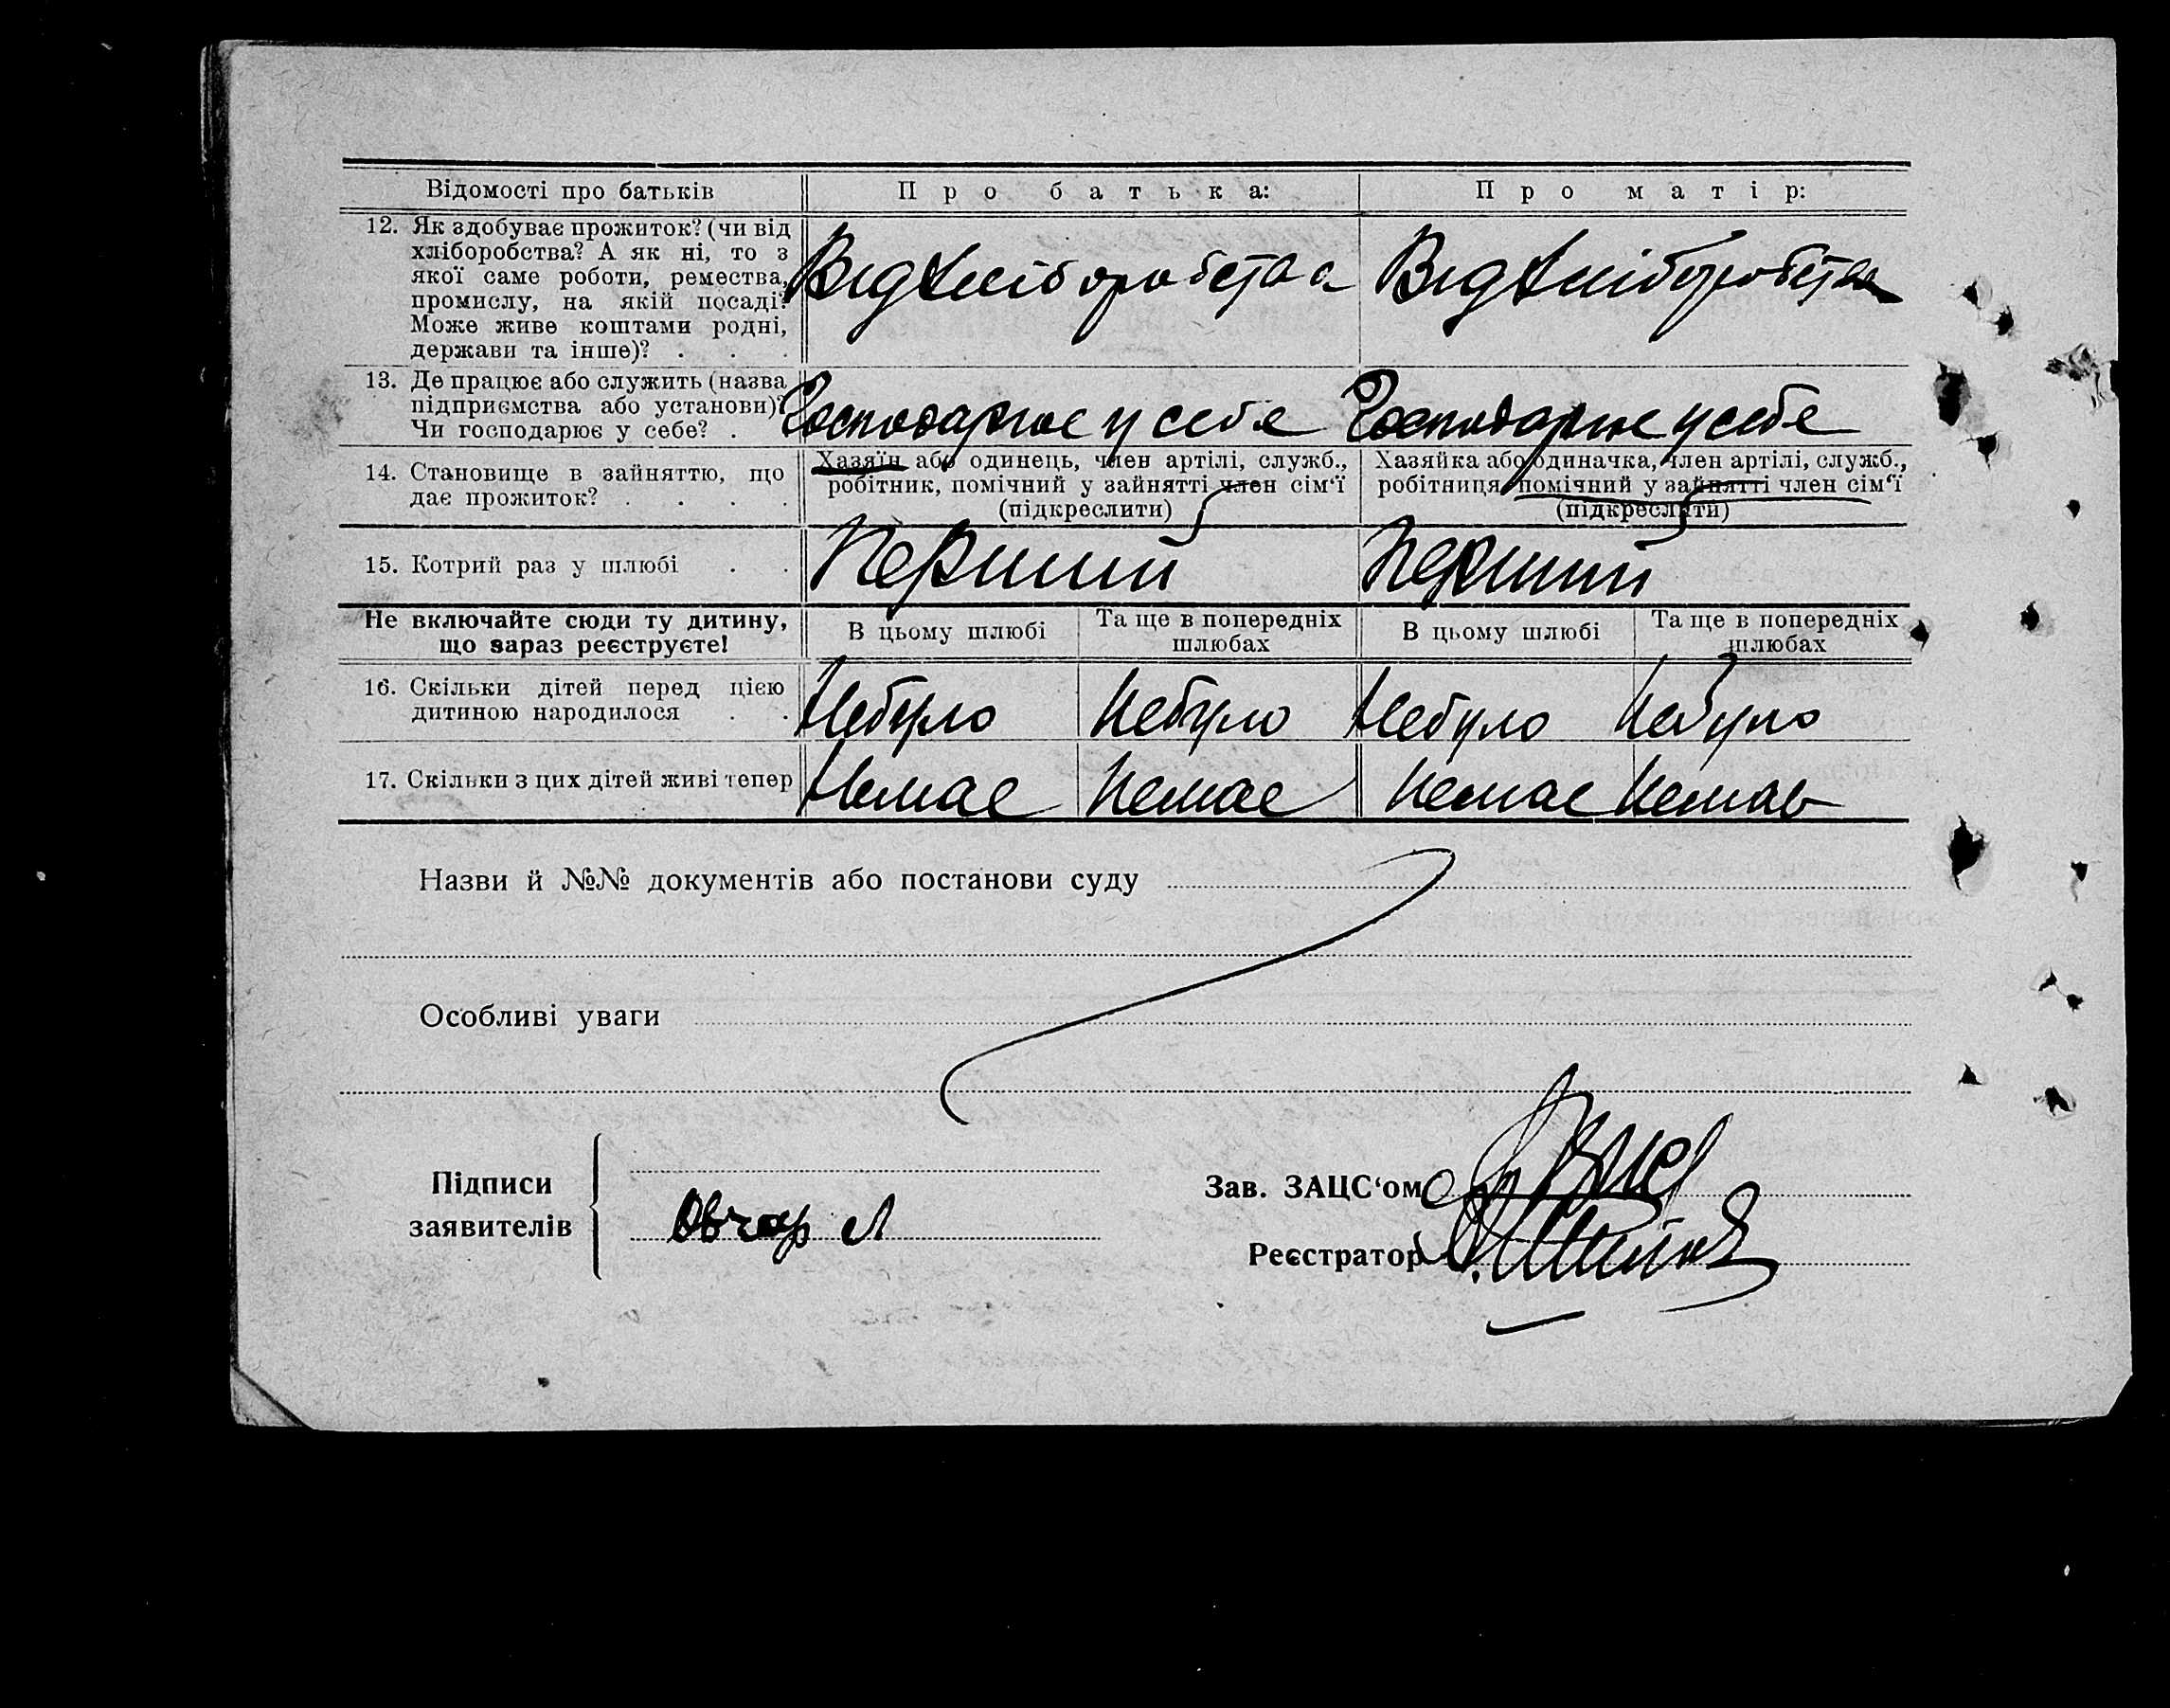 Відомості про батьків
Про батька:
Про матір:
12. Як здобуває прожиток? (чи від
хліборобства? А як ні, то з
якої саме роботи, ремества,
промислу, на якій посаді?
Може живе коштами родні,
держави та інше)? . . .
Від хліборобства
Від хліборобства
13. Де працює або служить (назва
підприємства або установи)?
Чи господарює у себе? .
Господарює у себе
Господарює у себе
14. Становище в зайняттю, що
дає прожиток? . . . .
Хазяїн або одинець, член артілі, служб.,
робітник, помічний у зайнятті член сім‘ї
(підкреслити)
Хазяйка або одиначка, член артілі, служб.,
робітниця, помічний у зайнятті член сім‘ї
(підкреслити)
15. Котрий раз у шлюбі . .
Перший
Перший
Не включайте сюди ту дитину,
що зараз реєструєте!
В цьому шлюбі
Та ще в попередніх
шлюбах
В цьому шлюбі
Та ще в попередніх
шлюбах
16. Скільки дітей перед цією
дитиною народилося . .
Небуло
Небуло
Небуло
Небуло
17. Скільки з цих дітей живі тепер
Немає
Немає
Немає
Немає
Назви й №№ документів або постанови суду
Особливі уваги
Підписи
заявителів
Овчар Л
Зав. ЗАЦС‘ом
Реєстратор